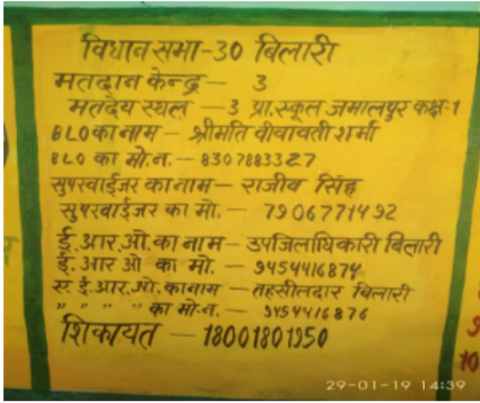 विधान सभा-30 बिलारी
मतदान केन्द्र - 3
मतदेय स्थल - 3 प्रा. स्कूल जमालपुर कक्ष-1
BLO का नाम - श्रीमति वीवावती शर्मा
BLO का मो.न. - 8307883327
सुपरवाईजर का नाम - राजीव सिंह
सुपरवाईजर का मो. - 7906771492
ई.आर.ओ. का नाम - उपजिलाधिकारी बिलारी
ई.आर ओ का मो. - 9454416874
ए ई.आर.ओ. का नाम - तहसीलदार बिलारी
" " " " का मो.न. - 9454416876
शिकायत - 18001801950
10
29-01-19 14:39